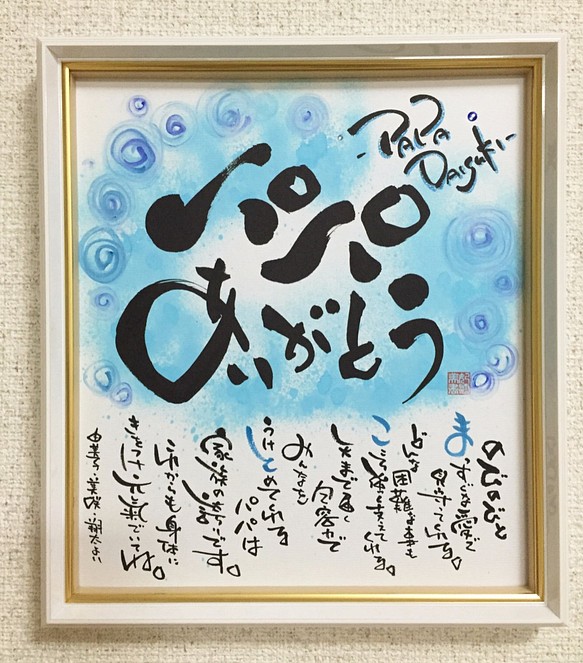 PAPA
Daisuki
パパ
ありがとう
のびのびと
まっすぐな愛で
見守ってくれる。
どんな困難な事も
こころ強く支えてくれる。
みんなを
うけとめてくれる
パパは
家族の誇りです。
これからも身体に
きをつけて元気でいてね。
翔太より